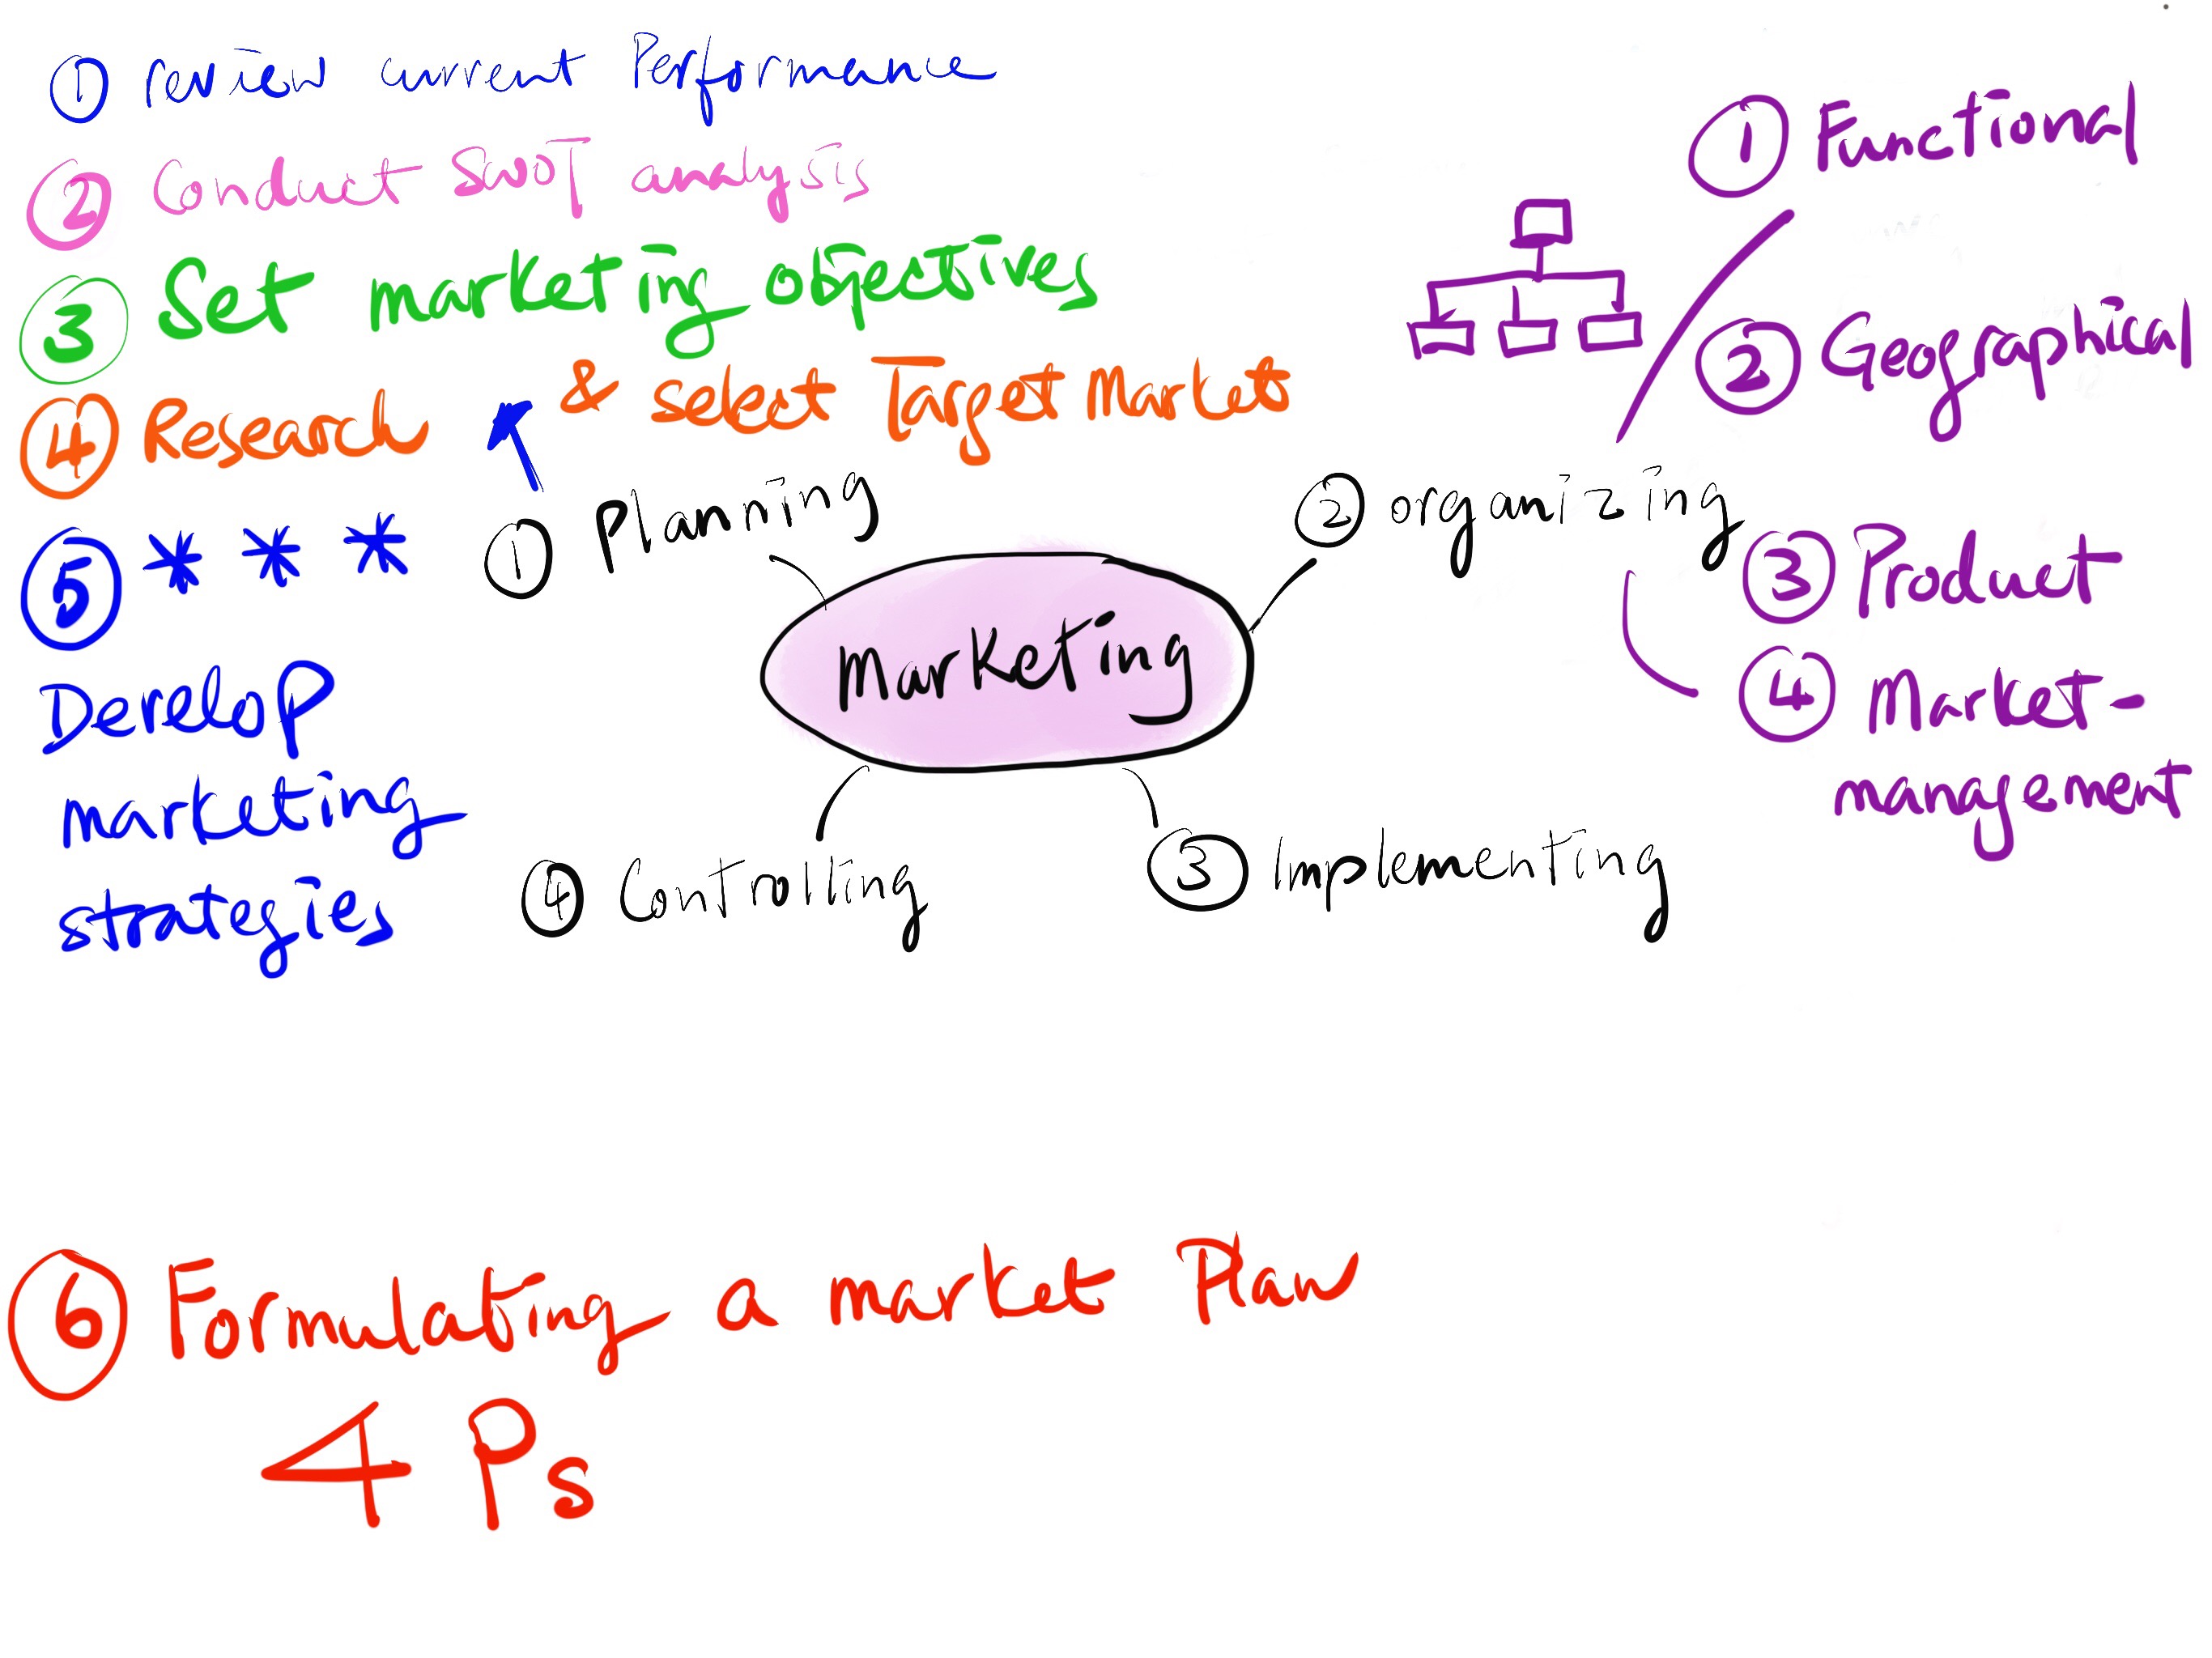 ① review current Performance
② Conduct SWOT analysis
③ Set marketing objectives
④ Research & select Target Market
⑤ * * *
Develop
marketing
strategies
① Planning
② organizing
Marketing
④ Controlling
③ Implementing
① Functional
② Geographical
③ Product
④ Market-
management
⑥ Formulating a market Plan
4 Ps